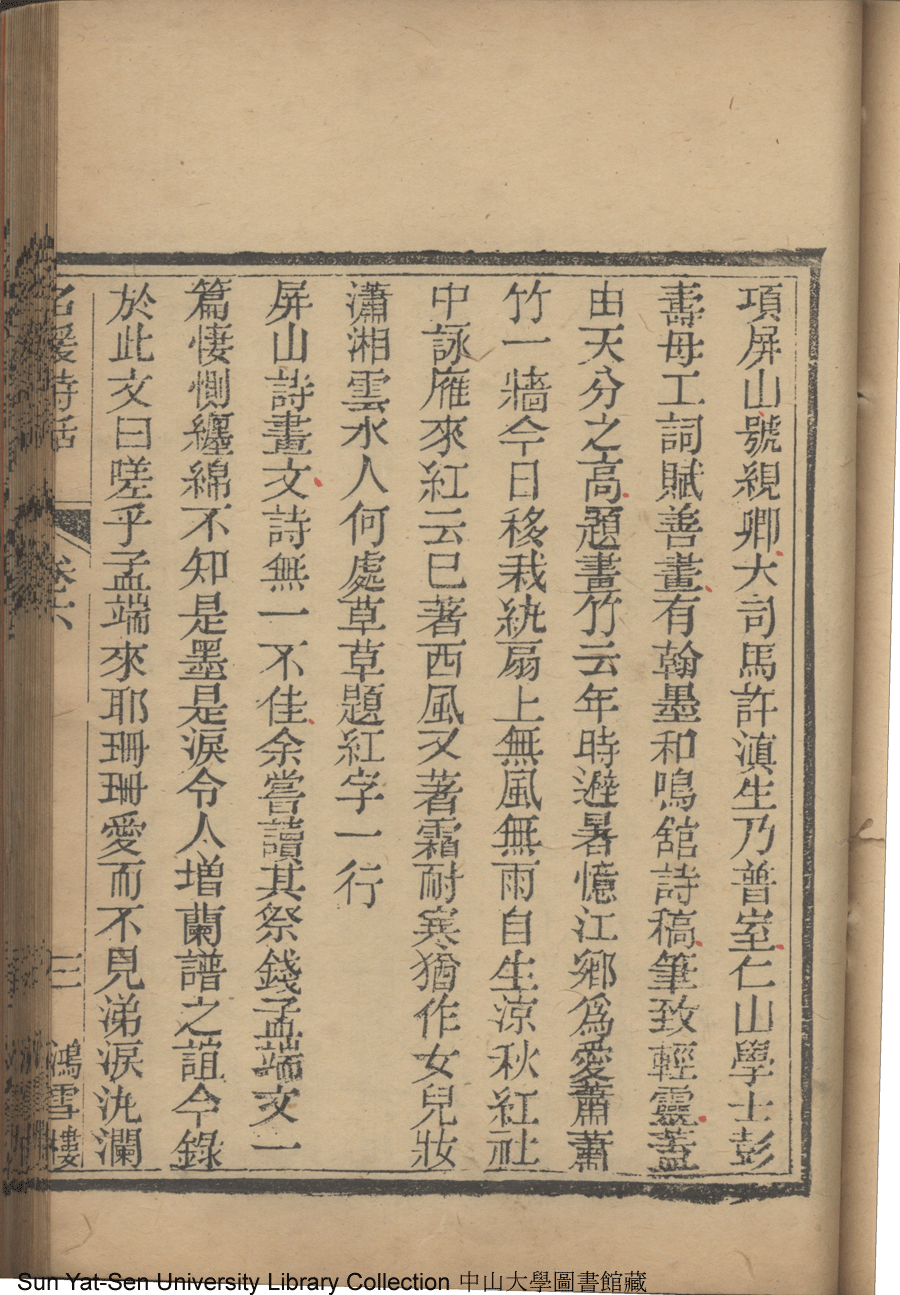 項屏山號覞卿大司馬許滇生乃普室仁山學士彭
壽母工詞賦善畫有翰墨和鳴舘詩稿筆致輕靈蓋
由天分之高題畫竹云年時避暑憶江鄉爲愛蕭蕭
竹一牆今日移栽紈扇上無風無雨自生凉秋紅社
中詠雁來紅云已著西風又著霜耐寒猶作女兒妝
瀟湘雲水人何處草草題紅字一行
屏山詩畫文詩無一不佳余嘗讀其祭錢孟端文一
篇悽惻纏綿不知是墨是淚令人增蘭譜之誼今錄
於此文曰嗟乎孟端來耶珊珊愛而不見涕淚汍瀾
名媛詩話 卷六 三 鴻雪樓
Sun Yat-Sen University Library Collection 中山大學圖書館藏